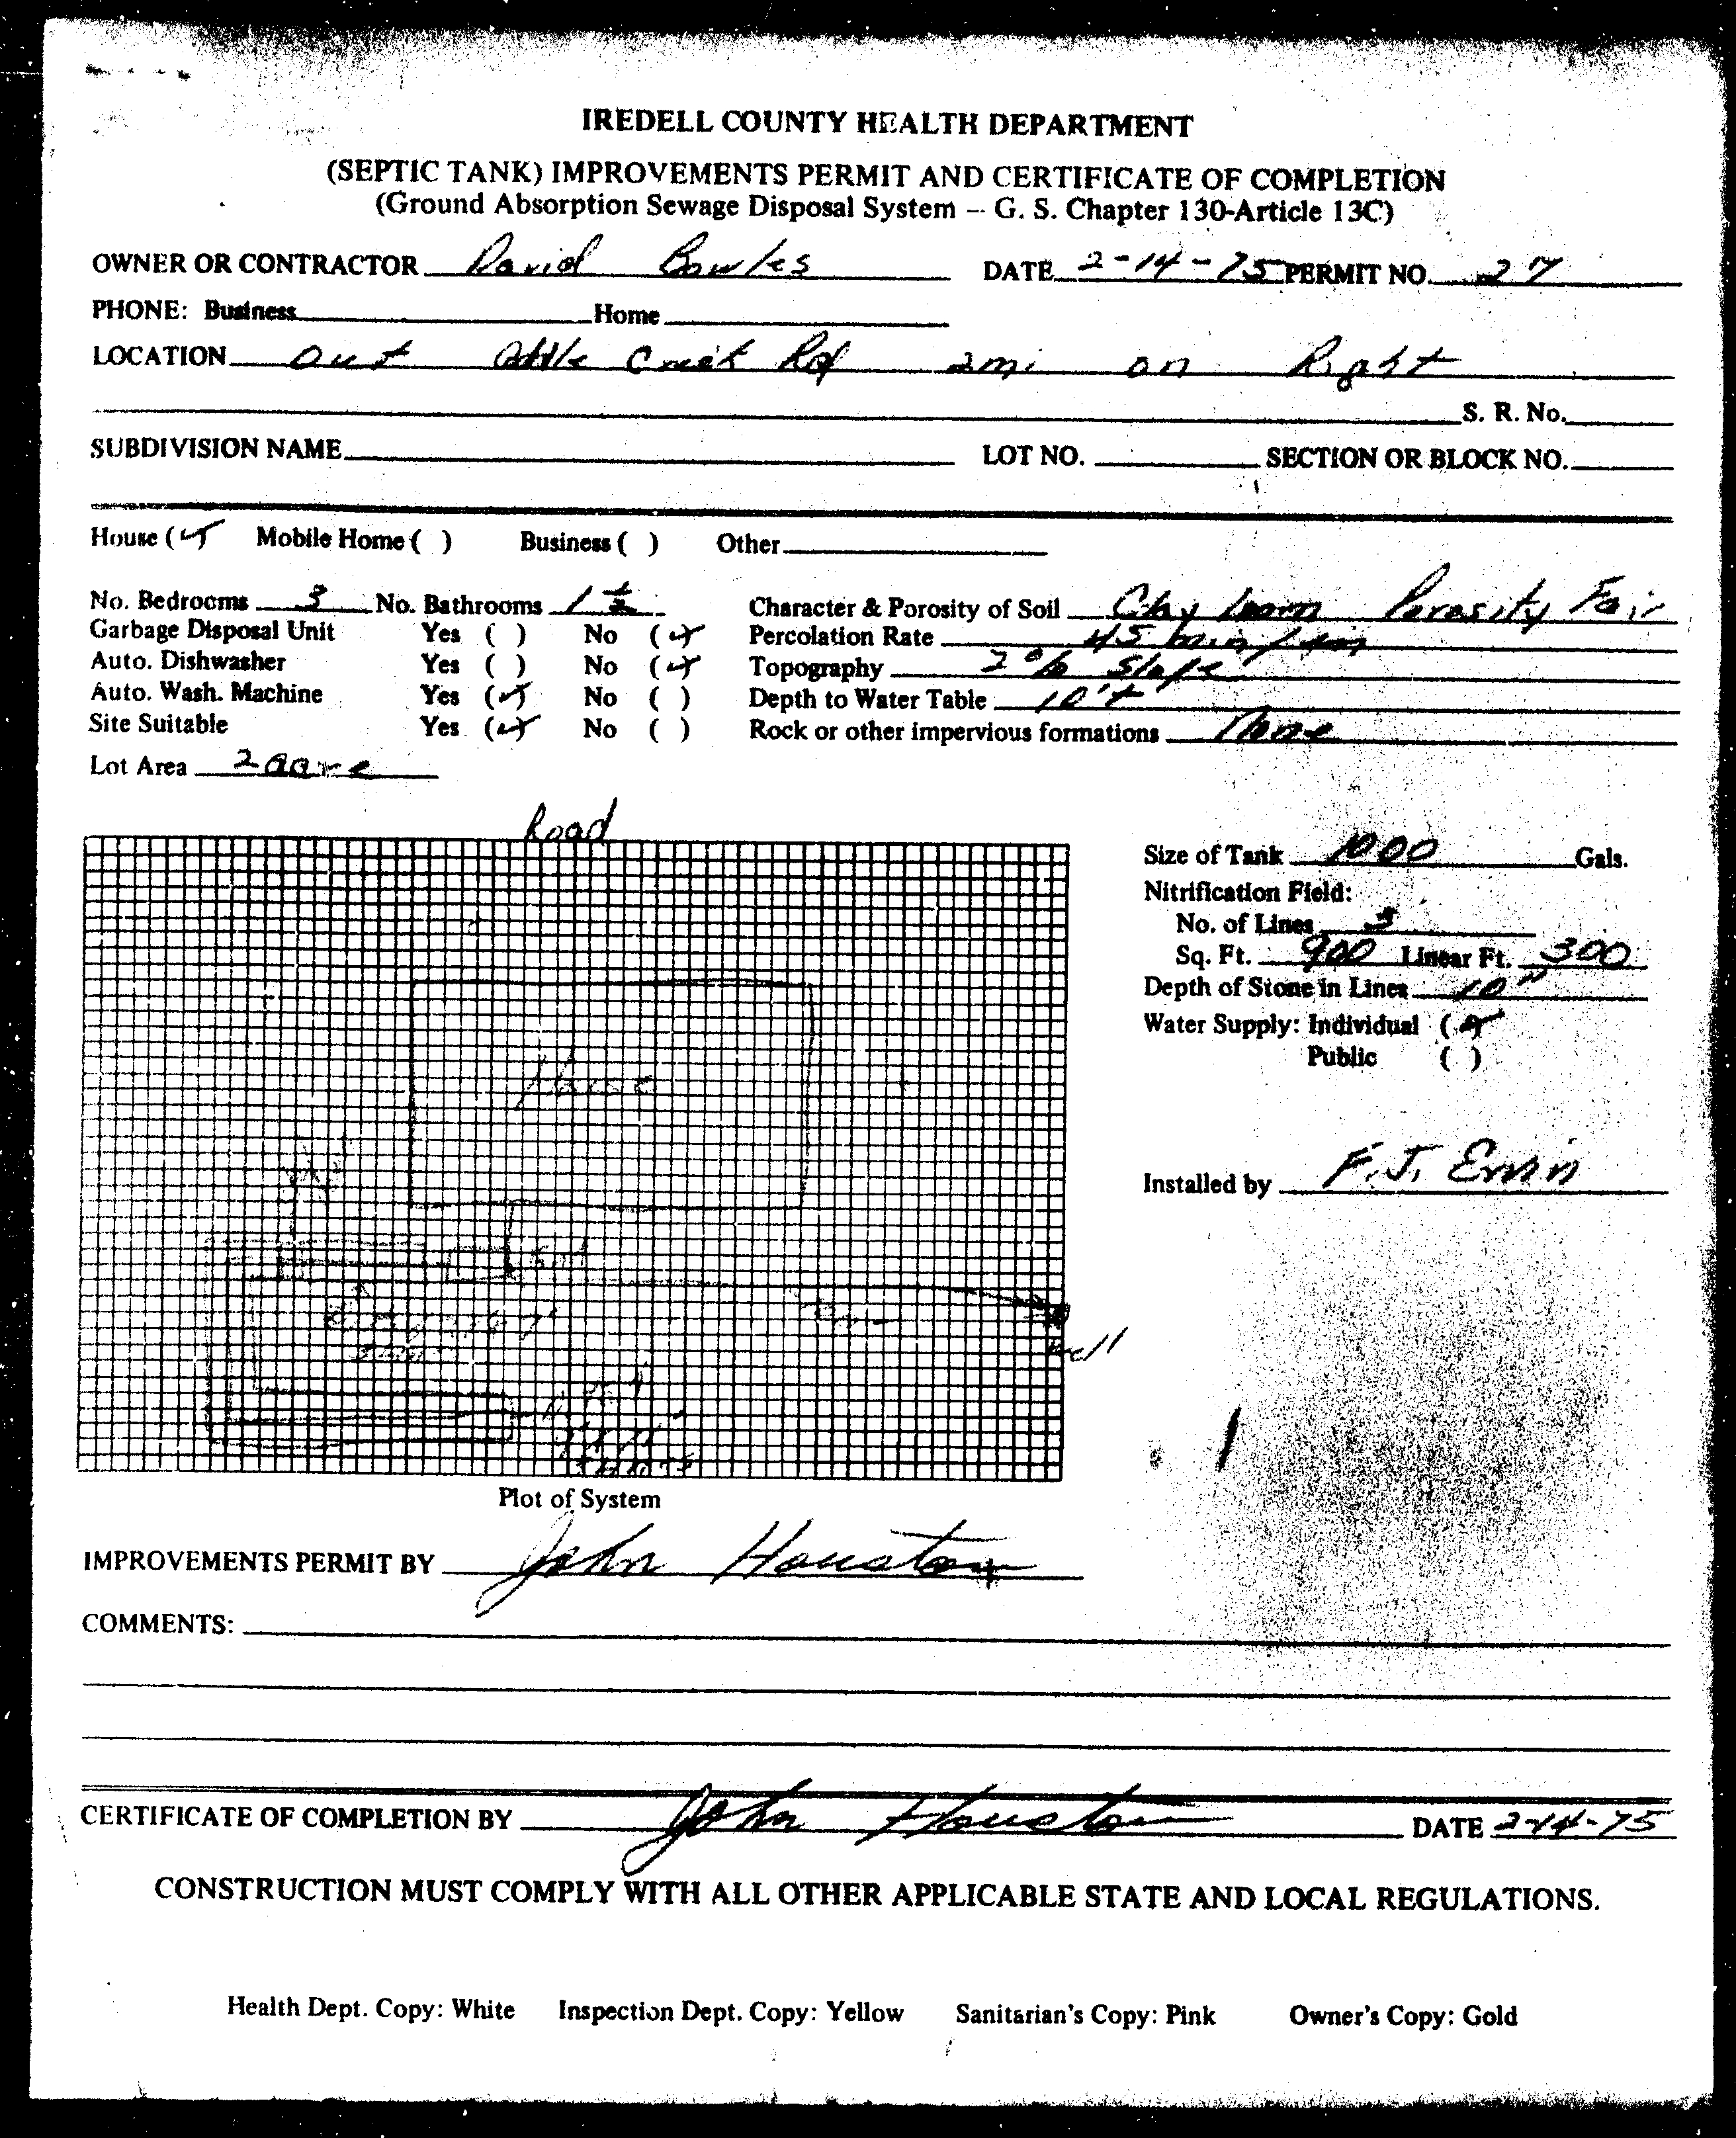 IREDELL COUNTY HEALTH DEPARTMENT
(SEPTIC TANK) IMPROVEMENTS PERMIT AND CERTIFICATE OF COMPLETION
(Ground Absorption Sewage Disposal System -- G. S. Chapter 130-Article 13C)
OWNER OR CONTRACTOR David Bowles DATE 2-14-75 PERMIT NO. 27
PHONE: Business Home
LOCATION Out Creek Rd 2mi on Right
S. R. No.
SUBDIVISION NAME LOT NO. SECTION OR BLOCK NO.
House (✓) Mobile Home ( ) Business ( ) Other
No. Bedrooms 3 No. Bathrooms 1 ½ Character & Porosity of Soil Clay Loam Porosity Fair
Garbage Disposal Unit Yes ( ) No (✓) Percolation Rate 45 min/
Auto. Dishwasher Yes ( ) No (✓) Topography 2% Slope
Auto. Wash. Machine Yes (✓) No ( ) Depth to Water Table 10'+
Site Suitable Yes (✓) No ( ) Rock or other impervious formations None
Lot Area 2 acre
Road
Size of Tank 1000 Gals.
Nitrification Field:
No. of Lines 3
Sq. Ft. 900 Linear Ft. 300
Depth of Stone in Lines 10"
Water Supply: Individual (✓)
Public ( )
House
Installed by F.J. Ervin
well
Plot of System
IMPROVEMENTS PERMIT BY John Houston
COMMENTS:
CERTIFICATE OF COMPLETION BY John Houston DATE 2-14-75
CONSTRUCTION MUST COMPLY WITH ALL OTHER APPLICABLE STATE AND LOCAL REGULATIONS.
Health Dept. Copy: White Inspection Dept. Copy: Yellow Sanitarian's Copy: Pink Owner's Copy: Gold